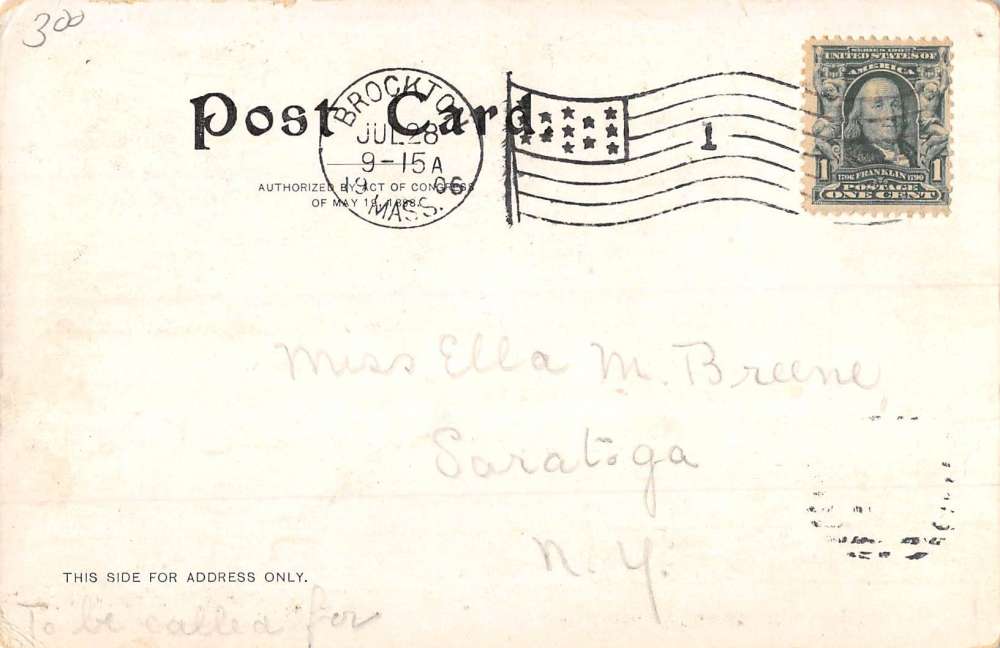 300
Post Card.
AUTHORIZED BY ACT OF CONGRESS
OF MAY 19, 1898.
BROCKTON
JUL 28
9-15 A
19 06
MASS.
1
SERIES 1902
UNITED STATES OF
AMERICA
1 1
1706 FRANKLIN 1790
POSTAGE
ONE CENT
Miss Ella M. Breene,
Saratoga
N. Y.
THIS SIDE FOR ADDRESS ONLY.
To be called for